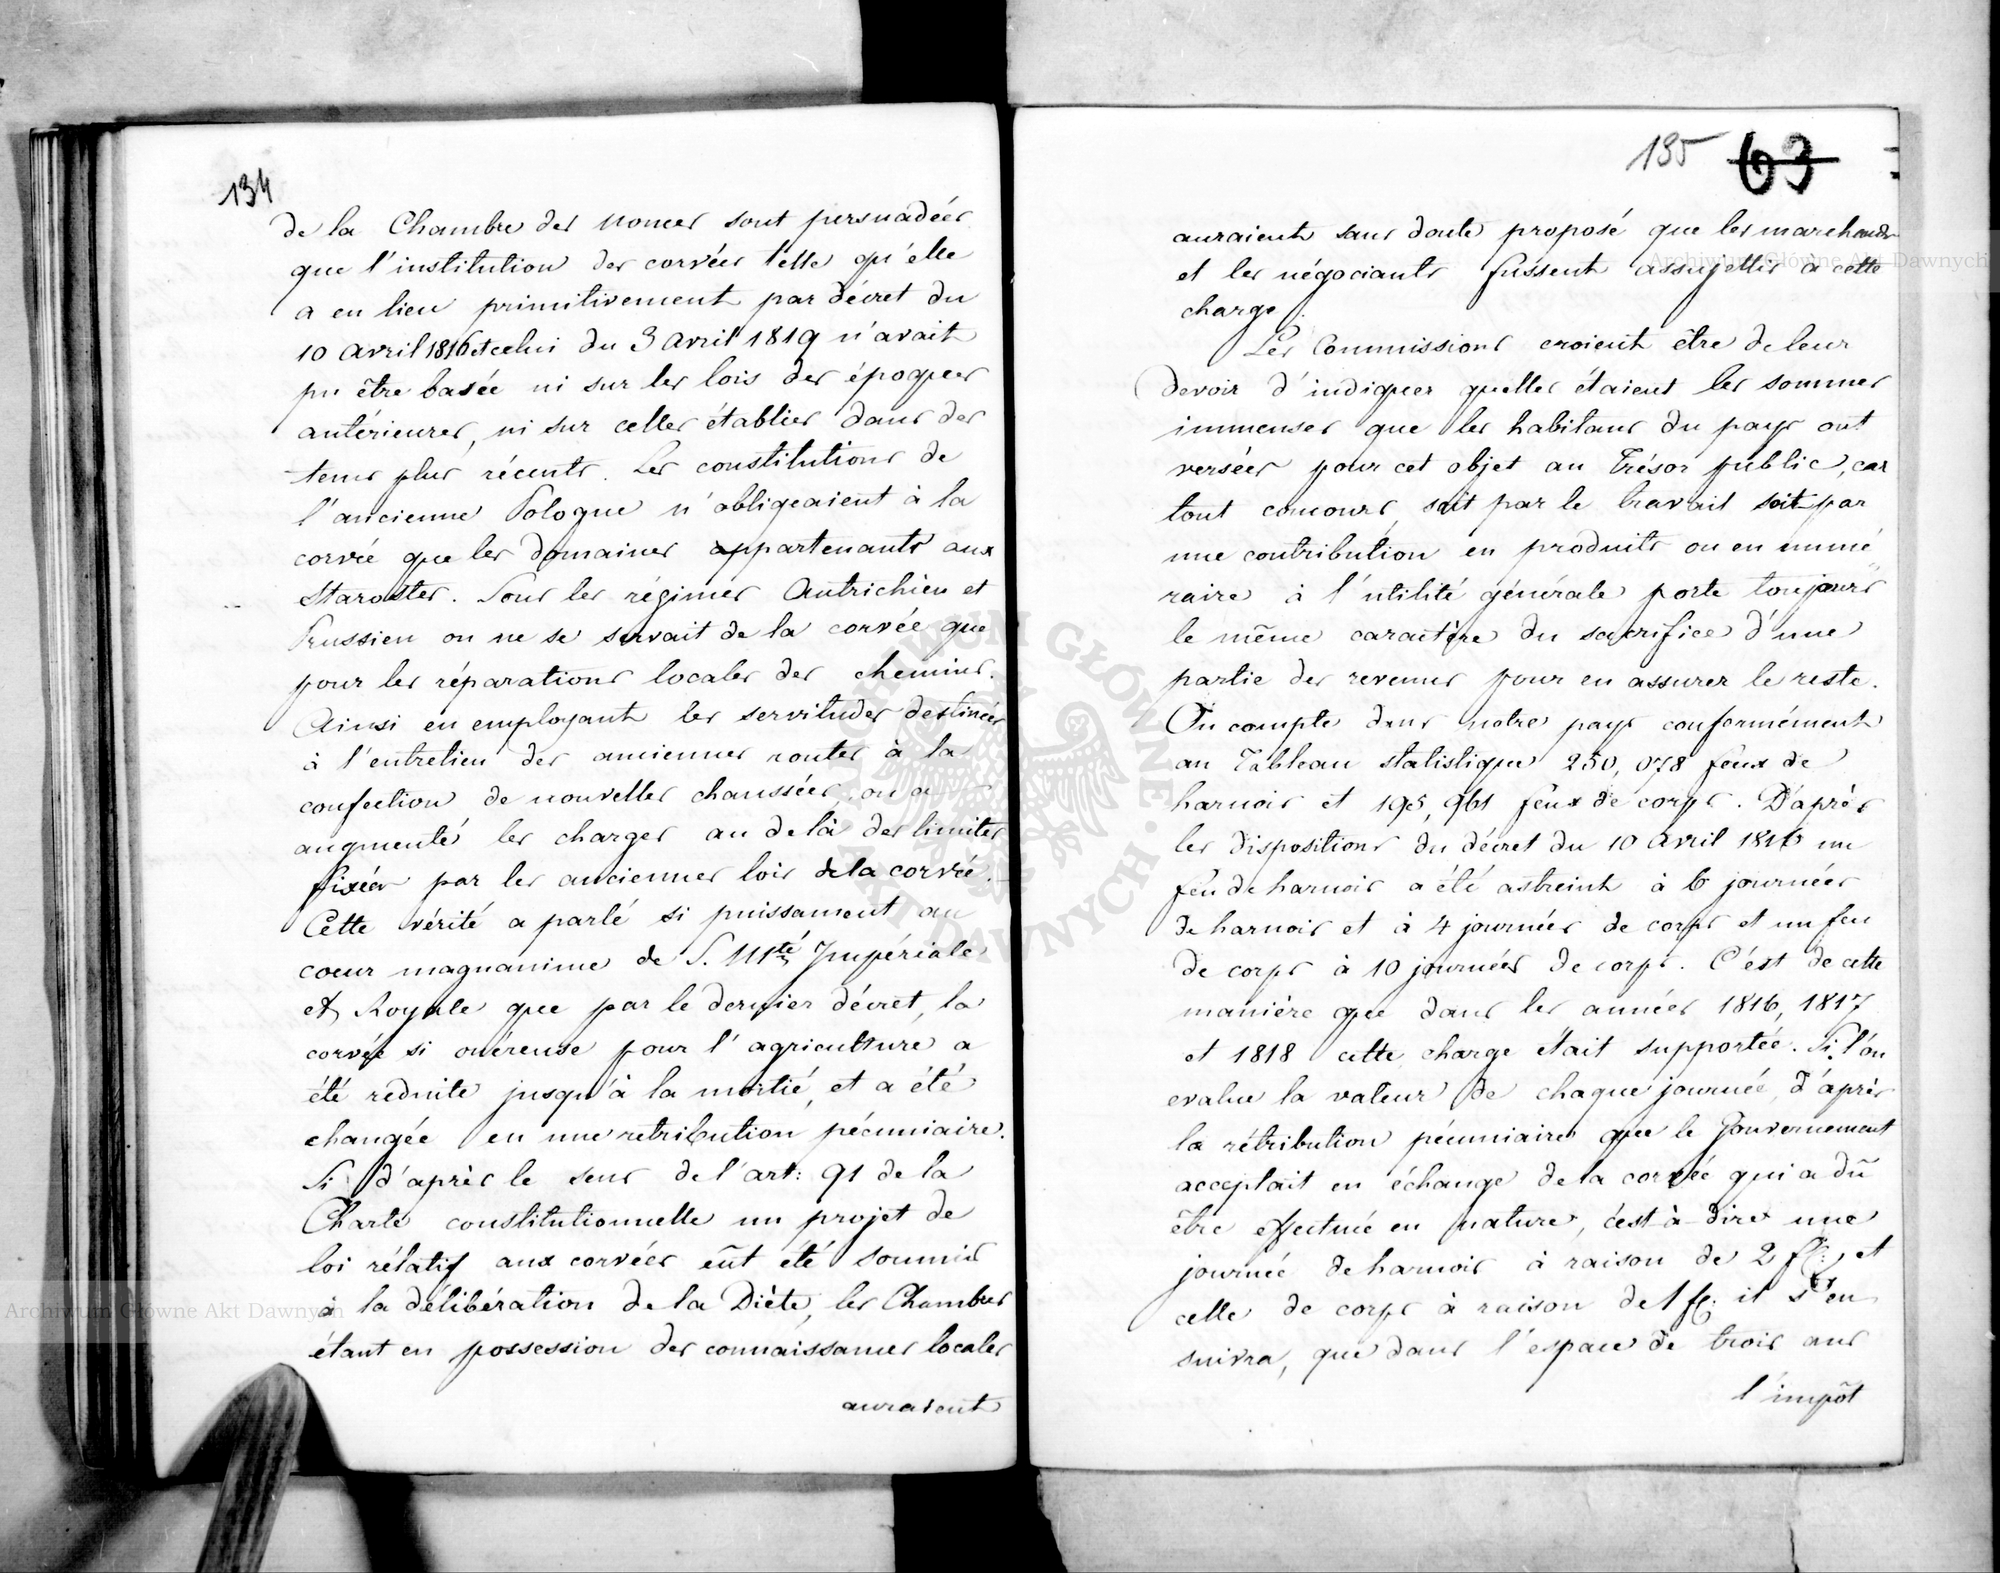 134
de la Chambre des Nonces sont persuadées
que l'institution des corvées telle qu'elle
a eu lieu primitivement par décret du
10 Avril 1816 et celui du 3 Avril 1819 n'avait
pu être basée ni sur les lois des époques
antérieures, ni sur celles établies dans des
tems plus récents. Les constitutions de
l'ancienne Pologne n'obligeaient à la
corvée que les domaines appartenants aux
Starostes. Sous les régimes Autrichien et
Prussien on ne se servait de la corvée que
pour les réparations locales des chemins.
Ainsi en employant les servitudes destinées
à l'entretien des anciennes routes à la
confection de nouvelles chaussées, on a
augmenté les charges au delà des limites
fixées par les anciennes lois de la corvée.
Cette vérité a parlé si puissament au
coeur magnanime de S. Mté Impériale
et Royale que par le dernier décret, la
corvée si onéreuse pour l'agriculture a
été reduite jusqu'à la moitié, et a été
changée en une retribution pécuniaire.
Si d'après le sens de l'art: 91 de la
Charte constitutionnelle un projet de
loi rélatif aux corvées eût été soumis
à la délibération de la Diète, les Chambres
étant en possession des connaissances locales
auraient
135 63
auraient sans doute proposé que les marchands
et les négociants fussent assujettis à cette
charge.
Les Commissions croient être de leur
devoir d'indiquer quelles étaient les sommes
immenses que les habitans du pays ont
versées pour cet objet au Trésor public, car
tout concours soit par le travail soit par
une contribution en produits ou en numé
raire à l'utilité générale porte toujours
le même caractère du sacrifice d'une
partie des revenus pour en assurer le reste.
On compte dans notre pays conformément
au Tableau statistique 250,078 feux de
harnois et 195,961 feux de corps. D'après
les dispositions du décret du 10 Avril 1816 un
feu de harnois a été astreint à 6 journées
de harnois et à 4 journées de corps et un feu
de corps à 10 journées de corps. C'est de cette
manière que dans les années 1816, 1817
et 1818 cette charge était supportée. Si l'on
evalue la valeur de chaque journée, d'après
la rétribution pécuniaire que le Gouvernement
acceptait en échange de la corvée qui a dû
être effectuée en nature, c'est-à-dire une
journée de harnois à raison de 2 fl: et
celle de corps à raison de 1 fl: il s'en
suivra, que dans l'espace de trois ans
l'impôt
Archiwum Główne Akt Dawnych
Archiwum Główne Akt Dawnych
ARCHIWUM GŁÓWNE · AKT DAWNYCH ·